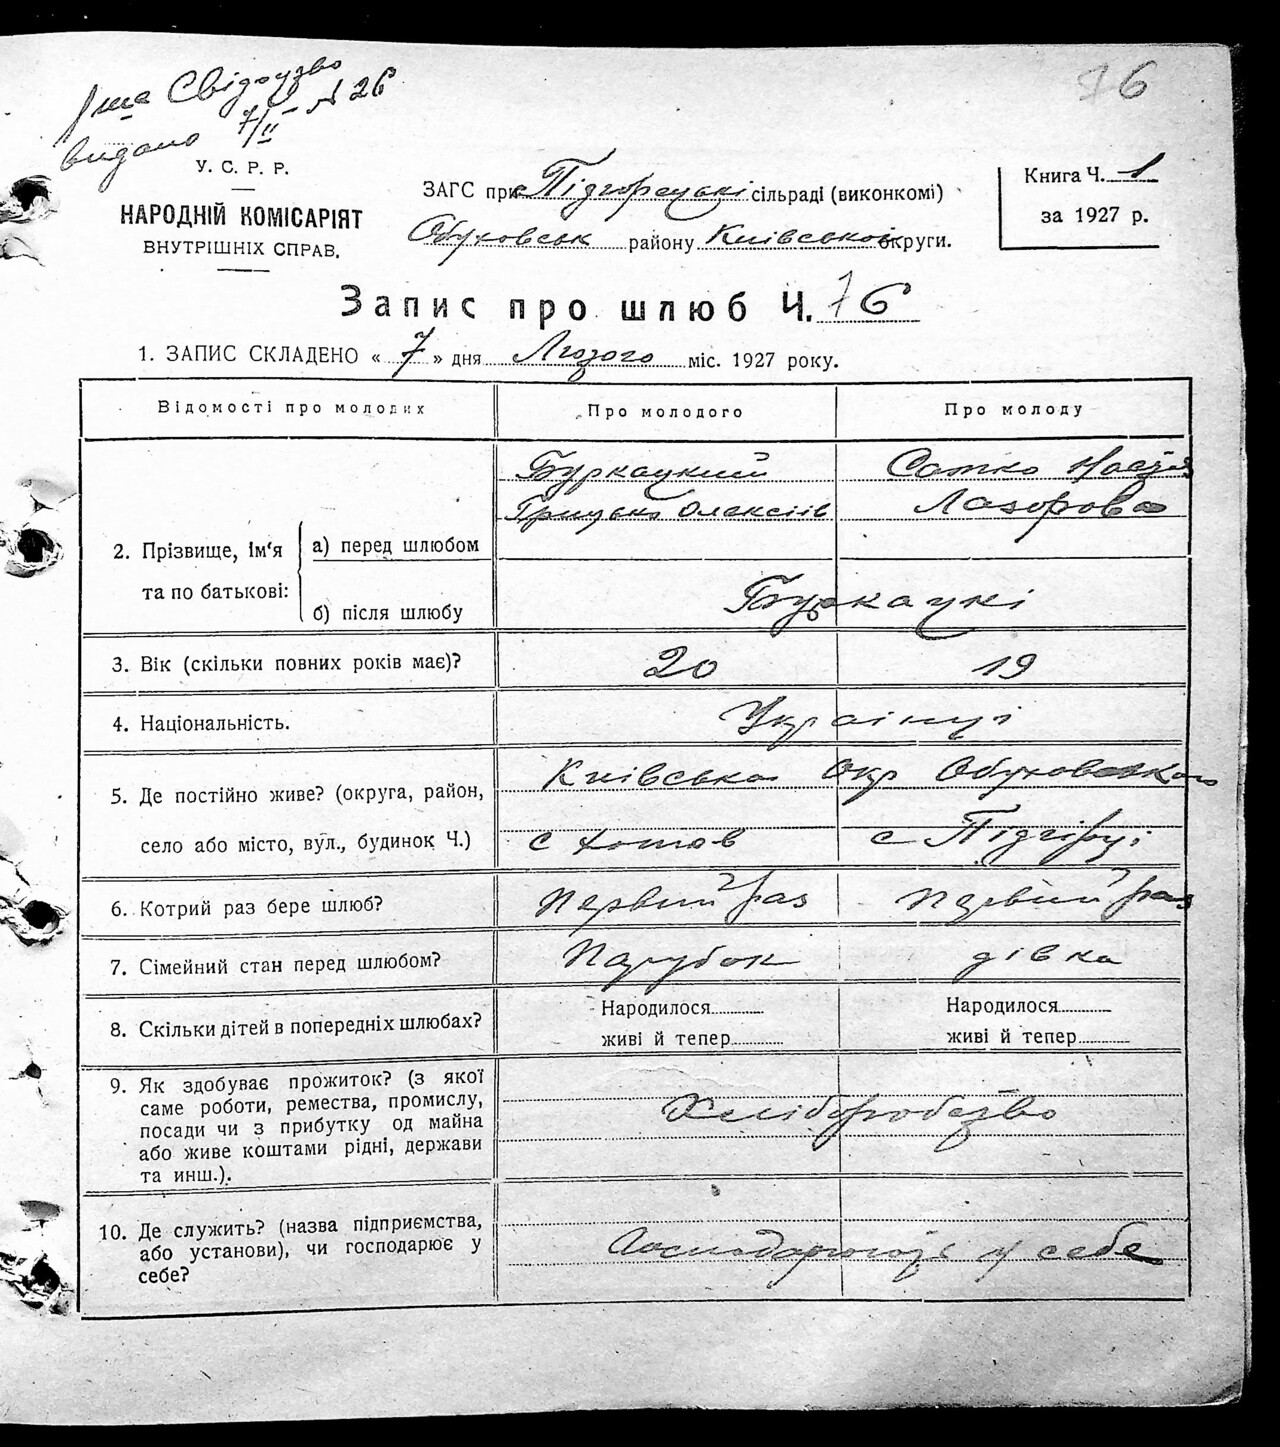 Свідоцтво
видано 7/II № 26
76
У. С. Р. Р.
НАРОДНІЙ КОМІСАРІЯТ
ВНУТРІШНІХ СПРАВ.
ЗАГС при Підгорецькі сільраді (виконкомі)
Обуховськ району Київської округи.
Книга Ч. 1
за 1927 р.
Запис про шлюб Ч. 76
1. ЗАПИС СКЛАДЕНО « 7 » дня Лютого міс. 1927 року.
Відомості про молодих
Про молодого
Про молоду
2. Прізвище, Ім'я та по батькові:
а) перед шлюбом
Буркацкий
Грицько Олексіїв
Сотко Настя
Лазорова
б) після шлюбу
Буркацкі
3. Вік (скільки повних років має)?
20
19
4. Національність.
Українці
5. Де постійно живе? (округа, район,
село або місто, вул., будинок Ч.)
Київська Окр Обуховського
с Хотов
с Підгірці
6. Котрий раз бере шлюб?
Первий раз
Первий раз
7. Сімейний стан перед шлюбом?
Парубок
дівка
8. Скільки дітей в попередніх шлюбах?
Народилося
живі й тепер
Народилося
живі й тепер
9. Як здобуває прожиток? (з якої
саме роботи, ремества, промислу,
посади чи з прибутку од майна
або живе коштами рідні, держави
та инш.).
Хліборобство
10. Де служить? (назва підприємства,
або установи), чи господарює у
себе?
Господарюють у себе